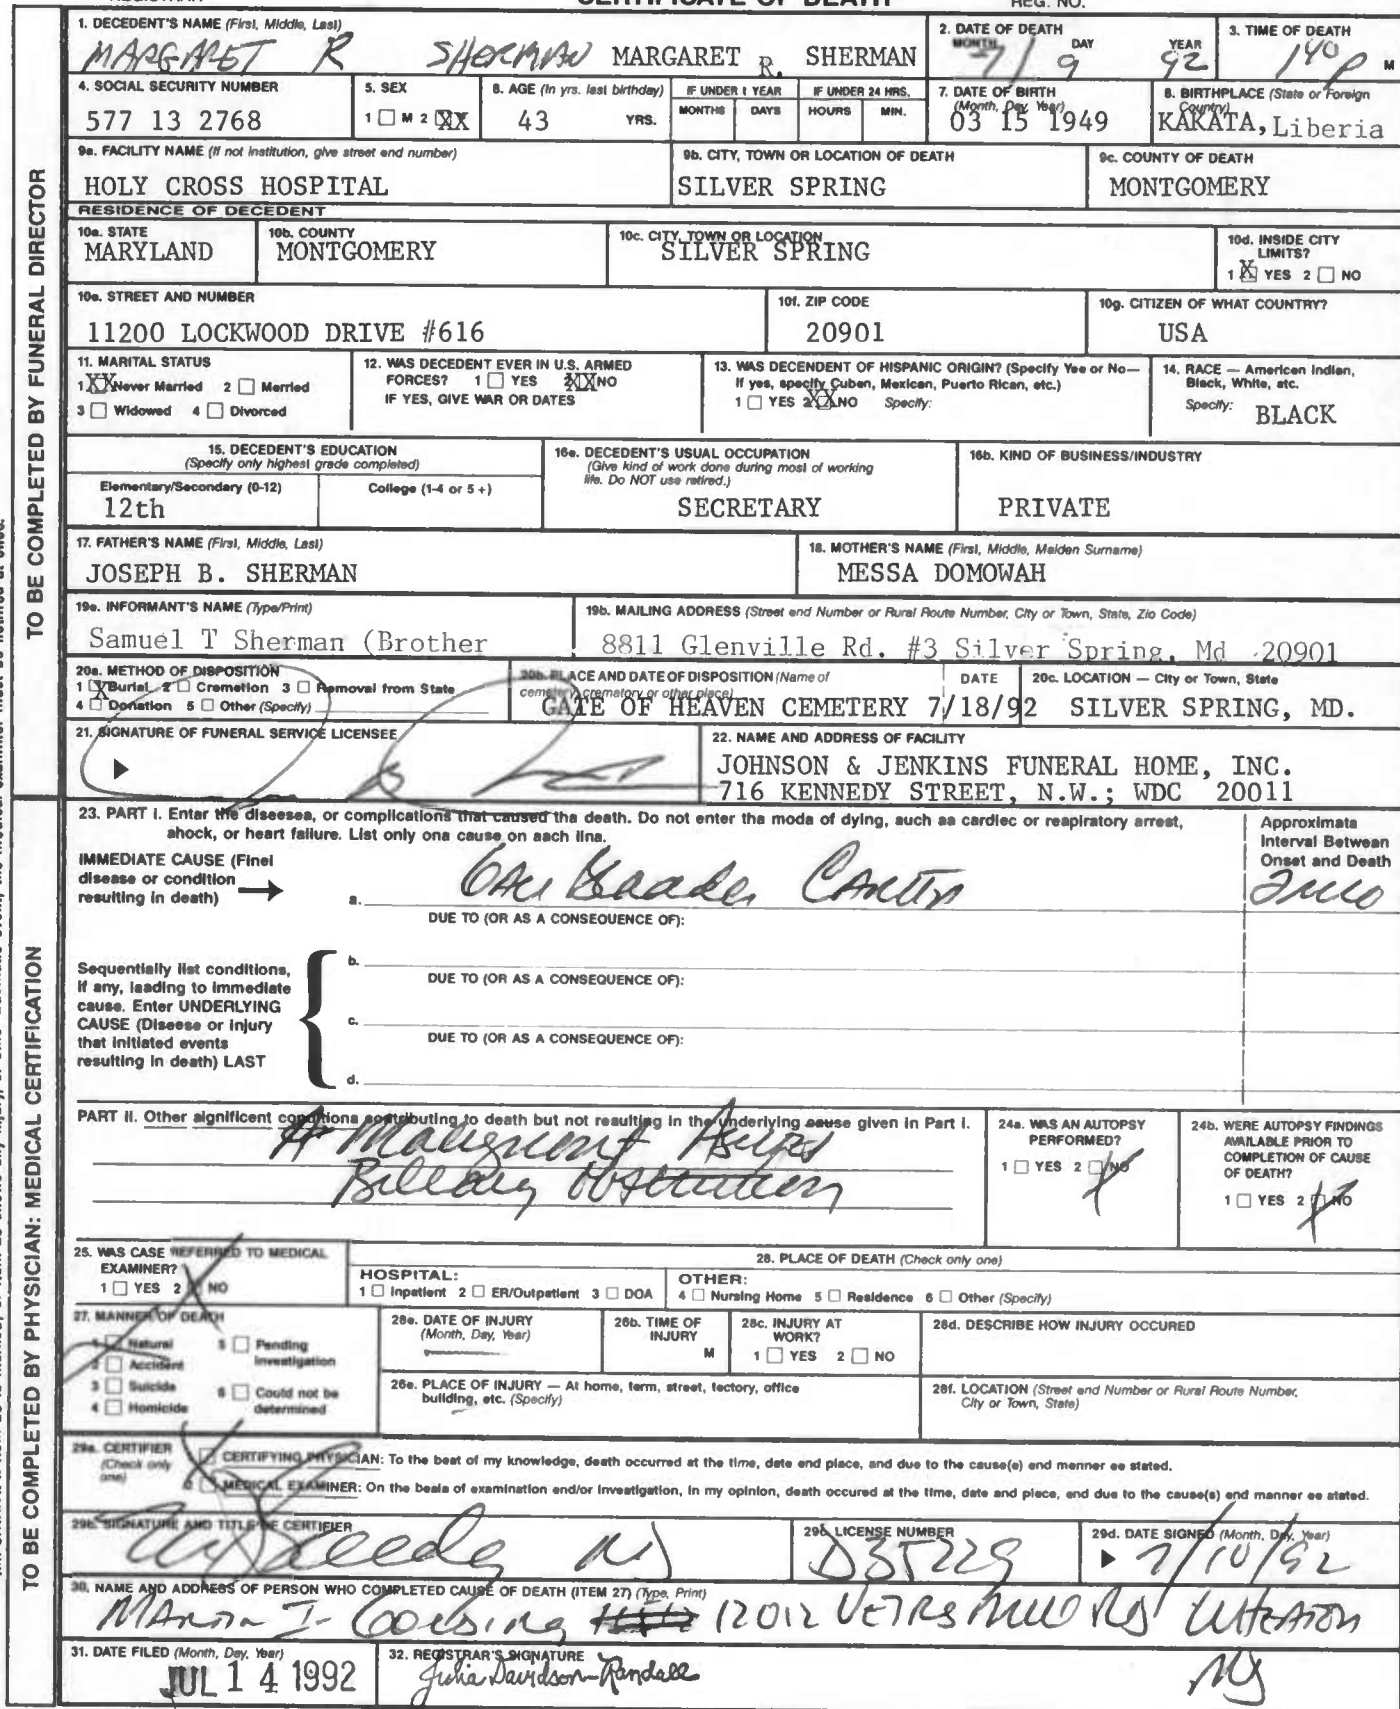 CERTIFICATE OF DEATH
REG. NO.
1. DECEDENT'S NAME (First, Middle, Last)
MARGARET R SHERMAN MARGARET R. SHERMAN
2. DATE OF DEATH
MONTH DAY YEAR
7/ 9 92
3. TIME OF DEATH
140 P M
4. SOCIAL SECURITY NUMBER
577 13 2768
5. SEX
1 M 2 XX
6. AGE (In yrs. last birthday)
43 YRS.
IF UNDER 1 YEAR
MONTHS DAYS
IF UNDER 24 HRS.
HOURS MIN.
7. DATE OF BIRTH
(Month, Day, Year)
03 15 1949
8. BIRTHPLACE (State or Foreign
Country)
KAKATA, Liberia
9a. FACILITY NAME (If not institution, give street end number)
HOLY CROSS HOSPITAL
9b. CITY, TOWN OR LOCATION OF DEATH
SILVER SPRING
9c. COUNTY OF DEATH
MONTGOMERY
RESIDENCE OF DECEDENT
10a. STATE
MARYLAND
10b. COUNTY
MONTGOMERY
10c. CITY, TOWN OR LOCATION
SILVER SPRING
10d. INSIDE CITY
LIMITS?
1 X YES 2 NO
10e. STREET AND NUMBER
11200 LOCKWOOD DRIVE #616
10f. ZIP CODE
20901
10g. CITIZEN OF WHAT COUNTRY?
USA
11. MARITAL STATUS
1 XX Never Married 2 Married
3 Widowed 4 Divorced
12. WAS DECEDENT EVER IN U.S. ARMED
FORCES? 1 YES 2 XX NO
IF YES, GIVE WAR OR DATES
13. WAS DECENDENT OF HISPANIC ORIGIN? (Specify Yes or No—
If yes, specify Cuban, Mexican, Puerto Rican, etc.)
1 YES 2 XX NO Specify:
14. RACE — American Indian,
Black, White, atc.
Specify: BLACK
15. DECEDENT'S EDUCATION
(Specify only highest grade completed)
Elementary/Secondary (0-12)
12th
College (1-4 or 5 +)
16a. DECEDENT'S USUAL OCCUPATION
(Give kind of work done during most of working
life. Do NOT use retired.)
SECRETARY
16b. KIND OF BUSINESS/INDUSTRY
PRIVATE
17. FATHER'S NAME (First, Middle, Last)
JOSEPH B. SHERMAN
18. MOTHER'S NAME (First, Middle, Maiden Surname)
MESSA DOMOWAH
19a. INFORMANT'S NAME (Type/Print)
Samuel T Sherman (Brother
19b. MAILING ADDRESS (Street end Number or Rural Route Number, City or Town, State, Zip Code)
8811 Glenville Rd. #3 Silver Spring, Md 20901
20a. METHOD OF DISPOSITION
1 X Burial 2 Cremetion 3 Removal from State
4 Donation 5 Other (Specify)
20b. PLACE AND DATE OF DISPOSITION (Name of
cemetery, crematory or other place)
DATE
GATE OF HEAVEN CEMETERY 7/18/92
20c. LOCATION — City or Town, State
SILVER SPRING, MD.
21. SIGNATURE OF FUNERAL SERVICE LICENSEE
22. NAME AND ADDRESS OF FACILITY
JOHNSON & JENKINS FUNERAL HOME, INC.
716 KENNEDY STREET, N.W.; WDC 20011
TO BE COMPLETED BY FUNERAL DIRECTOR
23. PART I. Enter the diseases, or complications that caused tha death. Do not enter tha moda of dying, auch aa cardlec or reapiratory arrest,
ahock, or heart failure. List only ona cause on aach lina.
Approximata
Interval Between
Onset and Death
IMMEDIATE CAUSE (Finel
disease or condition
resulting in death)
a. Cancer
DUE TO (OR AS A CONSEQUENCE OF):
b.
DUE TO (OR AS A CONSEQUENCE OF):
c.
DUE TO (OR AS A CONSEQUENCE OF):
d.
Sequentially list conditions,
if any, leading to immediate
cause. Enter UNDERLYING
CAUSE (Disease or injury
that initiated events
resulting in death) LAST
PART II. Other aignificent conditions contributing to death but not resulting in the underlying cause given in Part I.
Malignant Ascites
Billiary Obstruction
24a. WAS AN AUTOPSY
PERFORMED?
1 YES 2 NO
24b. WERE AUTOPSY FINDINGS
AVAILABLE PRIOR TO
COMPLETION OF CAUSE
OF DEATH?
1 YES 2 NO
25. WAS CASE REFERRED TO MEDICAL
EXAMINER?
1 YES 2 NO
26. PLACE OF DEATH (Check only one)
HOSPITAL:
1 Inpatient 2 ER/Outpatient 3 DOA
OTHER:
4 Nursing Home 5 Residence 6 Other (Specify)
27. MANNER OF DEATH
1 Natural 5 Pending
Investigation
2 Accident
3 Suicide 6 Could not be
determined
4 Homicide
28a. DATE OF INJURY
(Month, Day, Year)
28b. TIME OF
INJURY
M
28c. INJURY AT
WORK?
1 YES 2 NO
28d. DESCRIBE HOW INJURY OCCURED
28e. PLACE OF INJURY — At home, term, street, tectory, office
building, etc. (Specify)
28f. LOCATION (Street end Number or Rural Route Number,
City or Town, State)
29a. CERTIFIER
(Check only
one)
CERTIFYING PHYSICIAN: To the beat of my knowledge, death occurred at the time, date end place, and due to the cause(e) end menner ee stated.
MEDICAL EXAMINER: On the beala of examination end/or Invealigation, in my opinion, death occured at the time, date and piece, end due to the cause(s) end manner ee atated.
29b. SIGNATURE AND TITLE OF CERTIFIER
29c. LICENSE NUMBER
D35229
29d. DATE SIGNED (Month, Day, Year)
7/10/92
30. NAME AND ADDRESS OF PERSON WHO COMPLETED CAUSE OF DEATH (ITEM 27) (Type, Print)
12012 VEIRS MILL RD WHEATON
31. DATE FILED (Month, Day, Year)
JUL 14 1992
32. REGISTRAR'S SIGNATURE
Julia Davidson-Randall
TO BE COMPLETED BY PHYSICIAN: MEDICAL CERTIFICATION